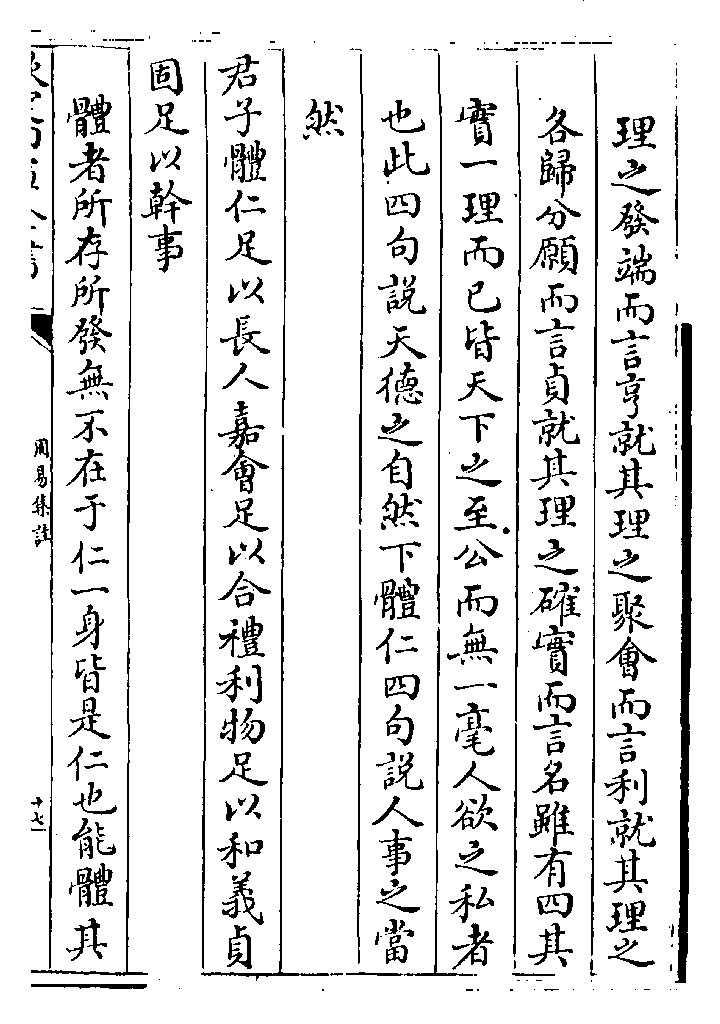 理之發端而言亨就其理之聚會而言利就其理之
各歸分願而言貞就其理之確實而言名雖有四其
實一理而已皆天下之至公而無一毫人欲之私者
也此四句說天德之自然下體仁四句說人事之當
然
君子體仁足以長人嘉會足以合禮利物足以和義貞
固足以幹事
體者所存所發無不在于仁一身皆是仁也能體其
周易集註
十七